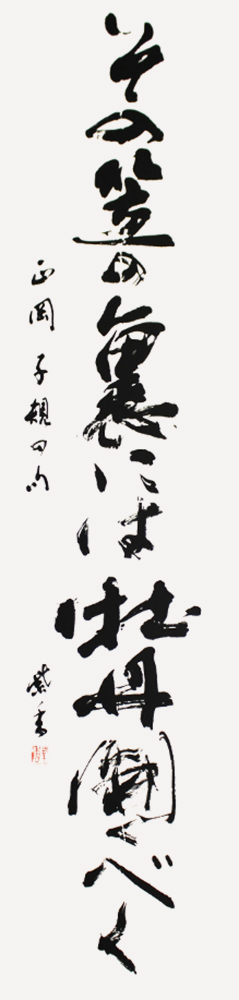 その笠の裏には牡丹開くべく
正岡子規の句
紫香